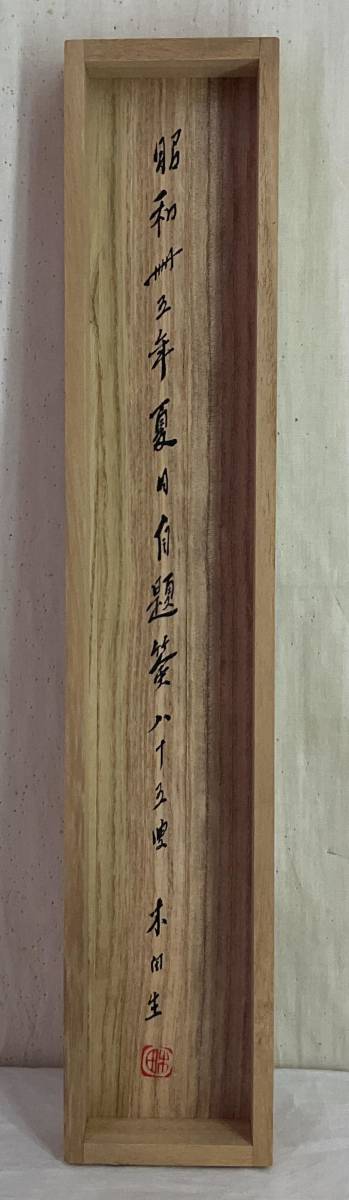 昭和卌五年夏日自題簽八十五叟 木生